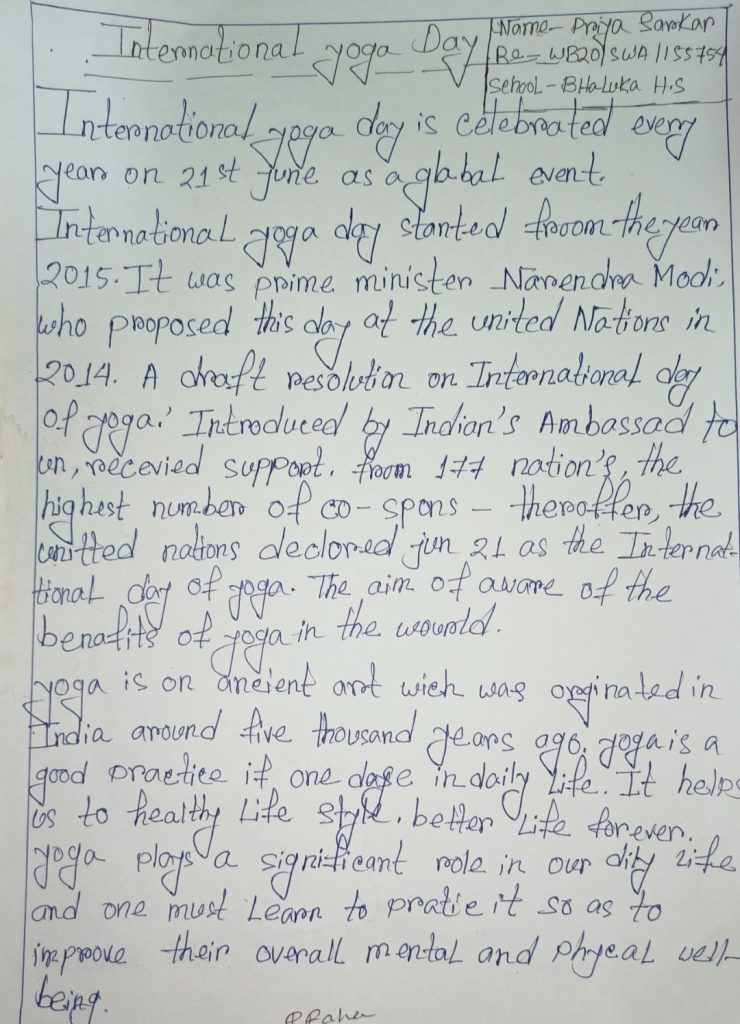 International yoga Day
Name- Priya Sarkar
Re- WB20/SWA/155754
School- BHaluka H.S
International yoga day is celebrated every
year on 21st june as a glabal event.
International yoga day started froom the year
2015. It was prime minister Narendra Modi,
who proposed this day at the united Nations in
2014. A draft resolution on International day
of yoga.' Introduced by Indian's Ambassad to
un, recevied support. from 177 nation's, the
highest number of co-spons - theroffer, the
unitted nations declored jun 21 as the Internat-
tional day of yoga. The aim of aware of the
benafits of yoga in the wourld.
yoga is on ancient art wich was orginated in
India around five thousand years ago. yoga is a
good practice if one dase in daily life. It helps
us to healthy Life style. better Life forever.
yoga plays a significant role in our dily life
and one must Learn to pratie it so as to
improove their overall mental and phycal well-
being.